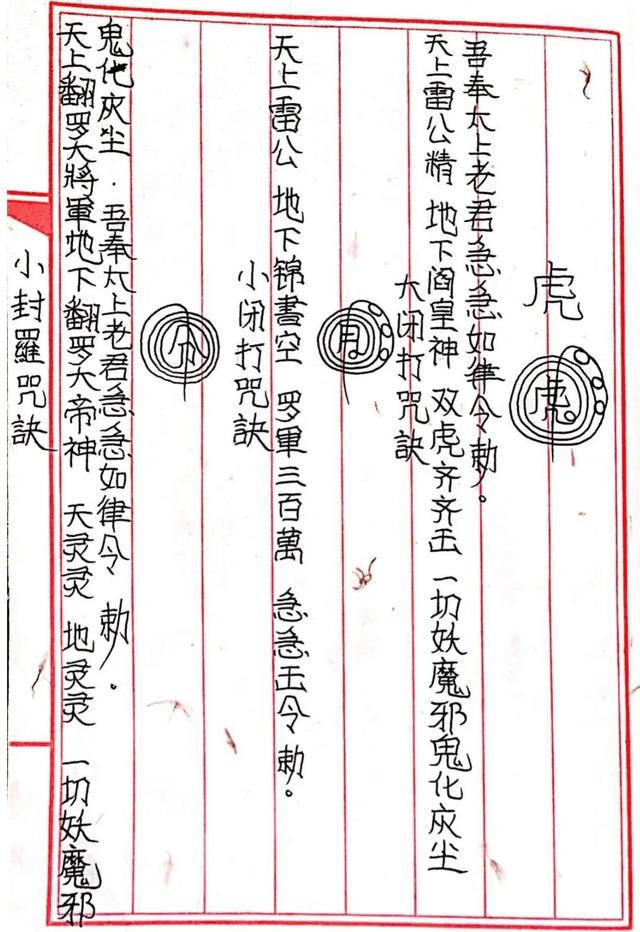 小封羅咒訣
天上翻罗大將軍地下翻罗大帝神 天灵灵 地灵灵 一切妖魔邪
鬼化灰尘.吾奉太上老君急急如律令 勅。
小闭打咒訣
天上雷公 地下锦書空 罗軍三百萬 急急玉令勅。
月
大闭打咒訣
天上雷公精 地下阎皇神 双虎齐齐玉 一切妖魔邪鬼化灰尘
吾奉太上老君急急如律令勅。
虎
虎